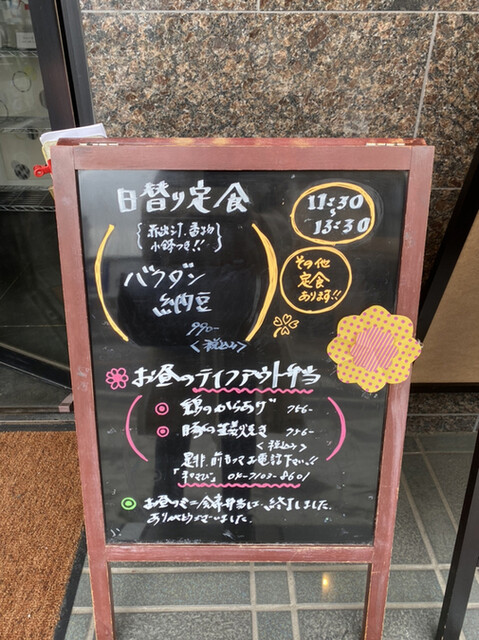 日替り定食
11:30
〜
13:30
赤出汁、香物
小鉢つき!!
バクダン
納豆
990-
<税込み>
その他
定食
あります!!
お昼のテイクアウト弁当
鶏のからあげ 756-
豚の生姜焼き 756-
<税込み>
是非、前もってお電話下さい!!
04-7103-8601
お昼のミニ会席弁当は、終了しました。
ありがとうございました。